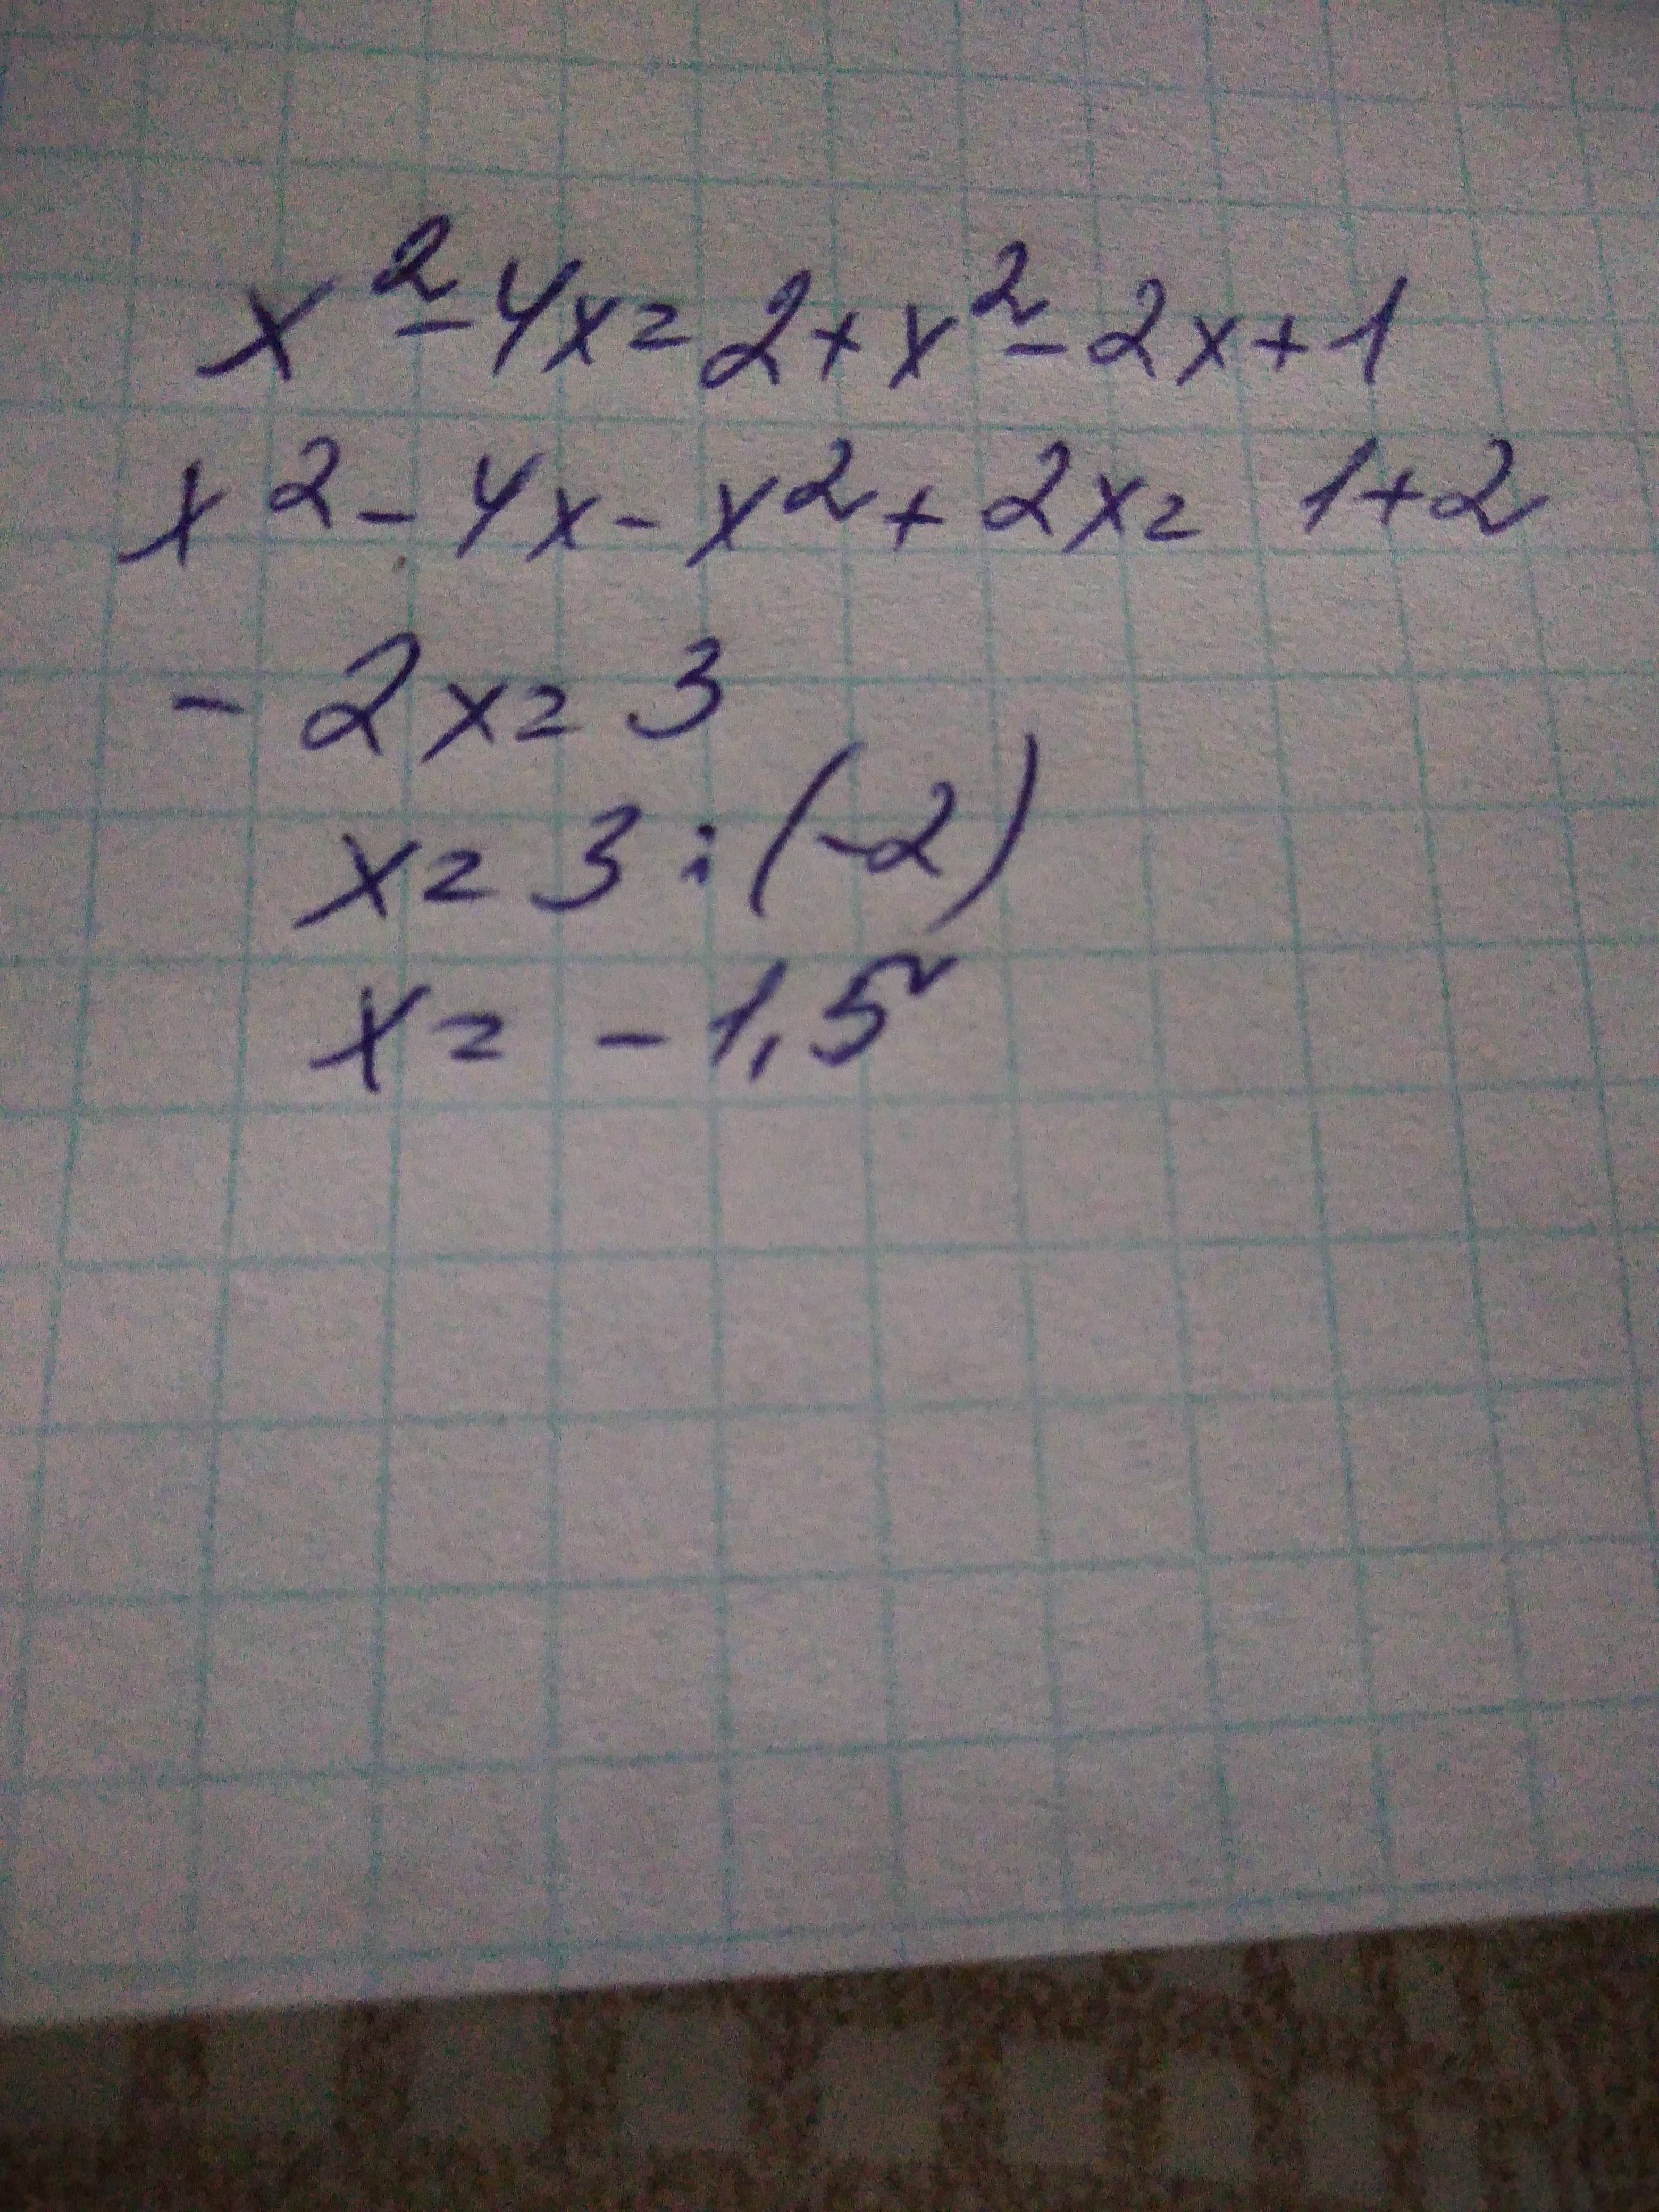 x² - 4x = 2 + x² - 2x + 1
x² - 4x - x² + 2x = 1 + 2
- 2x = 3
x = 3 : (-2)
x = - 1,5